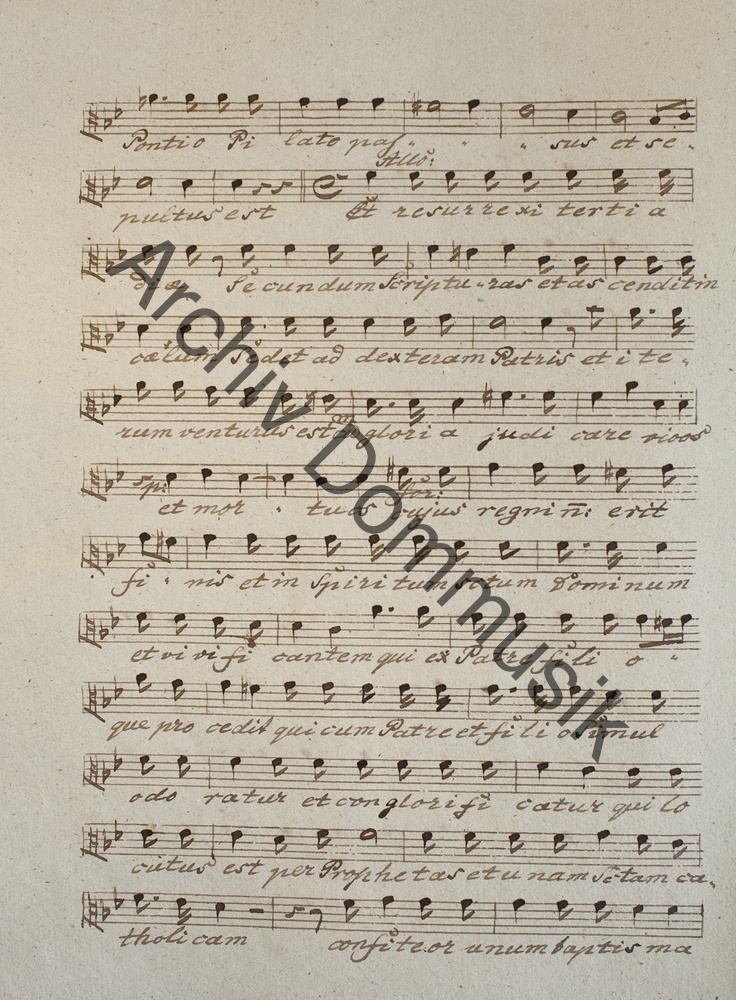 Pontio Pi lato pas- - - sus et se-
Allo:
pultus est Et resurrexi terti a
die Se cundum Scriptu-ras et as cendit in
cælum Sedet ad dexteram Patris et i te-
rum venturus est cum glori a judi care vivos
sp:
for:
et mor - tuos cujus regni n̄: erit
fi - nis et in Spiri tum sctum Dominum
et vi vi fi cantem qui ex Patre fi li o -
que pro cedit qui cum Patre et fi li o simul
odo ratur et conglorifi catur qui lo
cutus est per Prophetas et u nam Sctam ca-
tholicam confiteor unum baptis ma
Archiv Dommusik